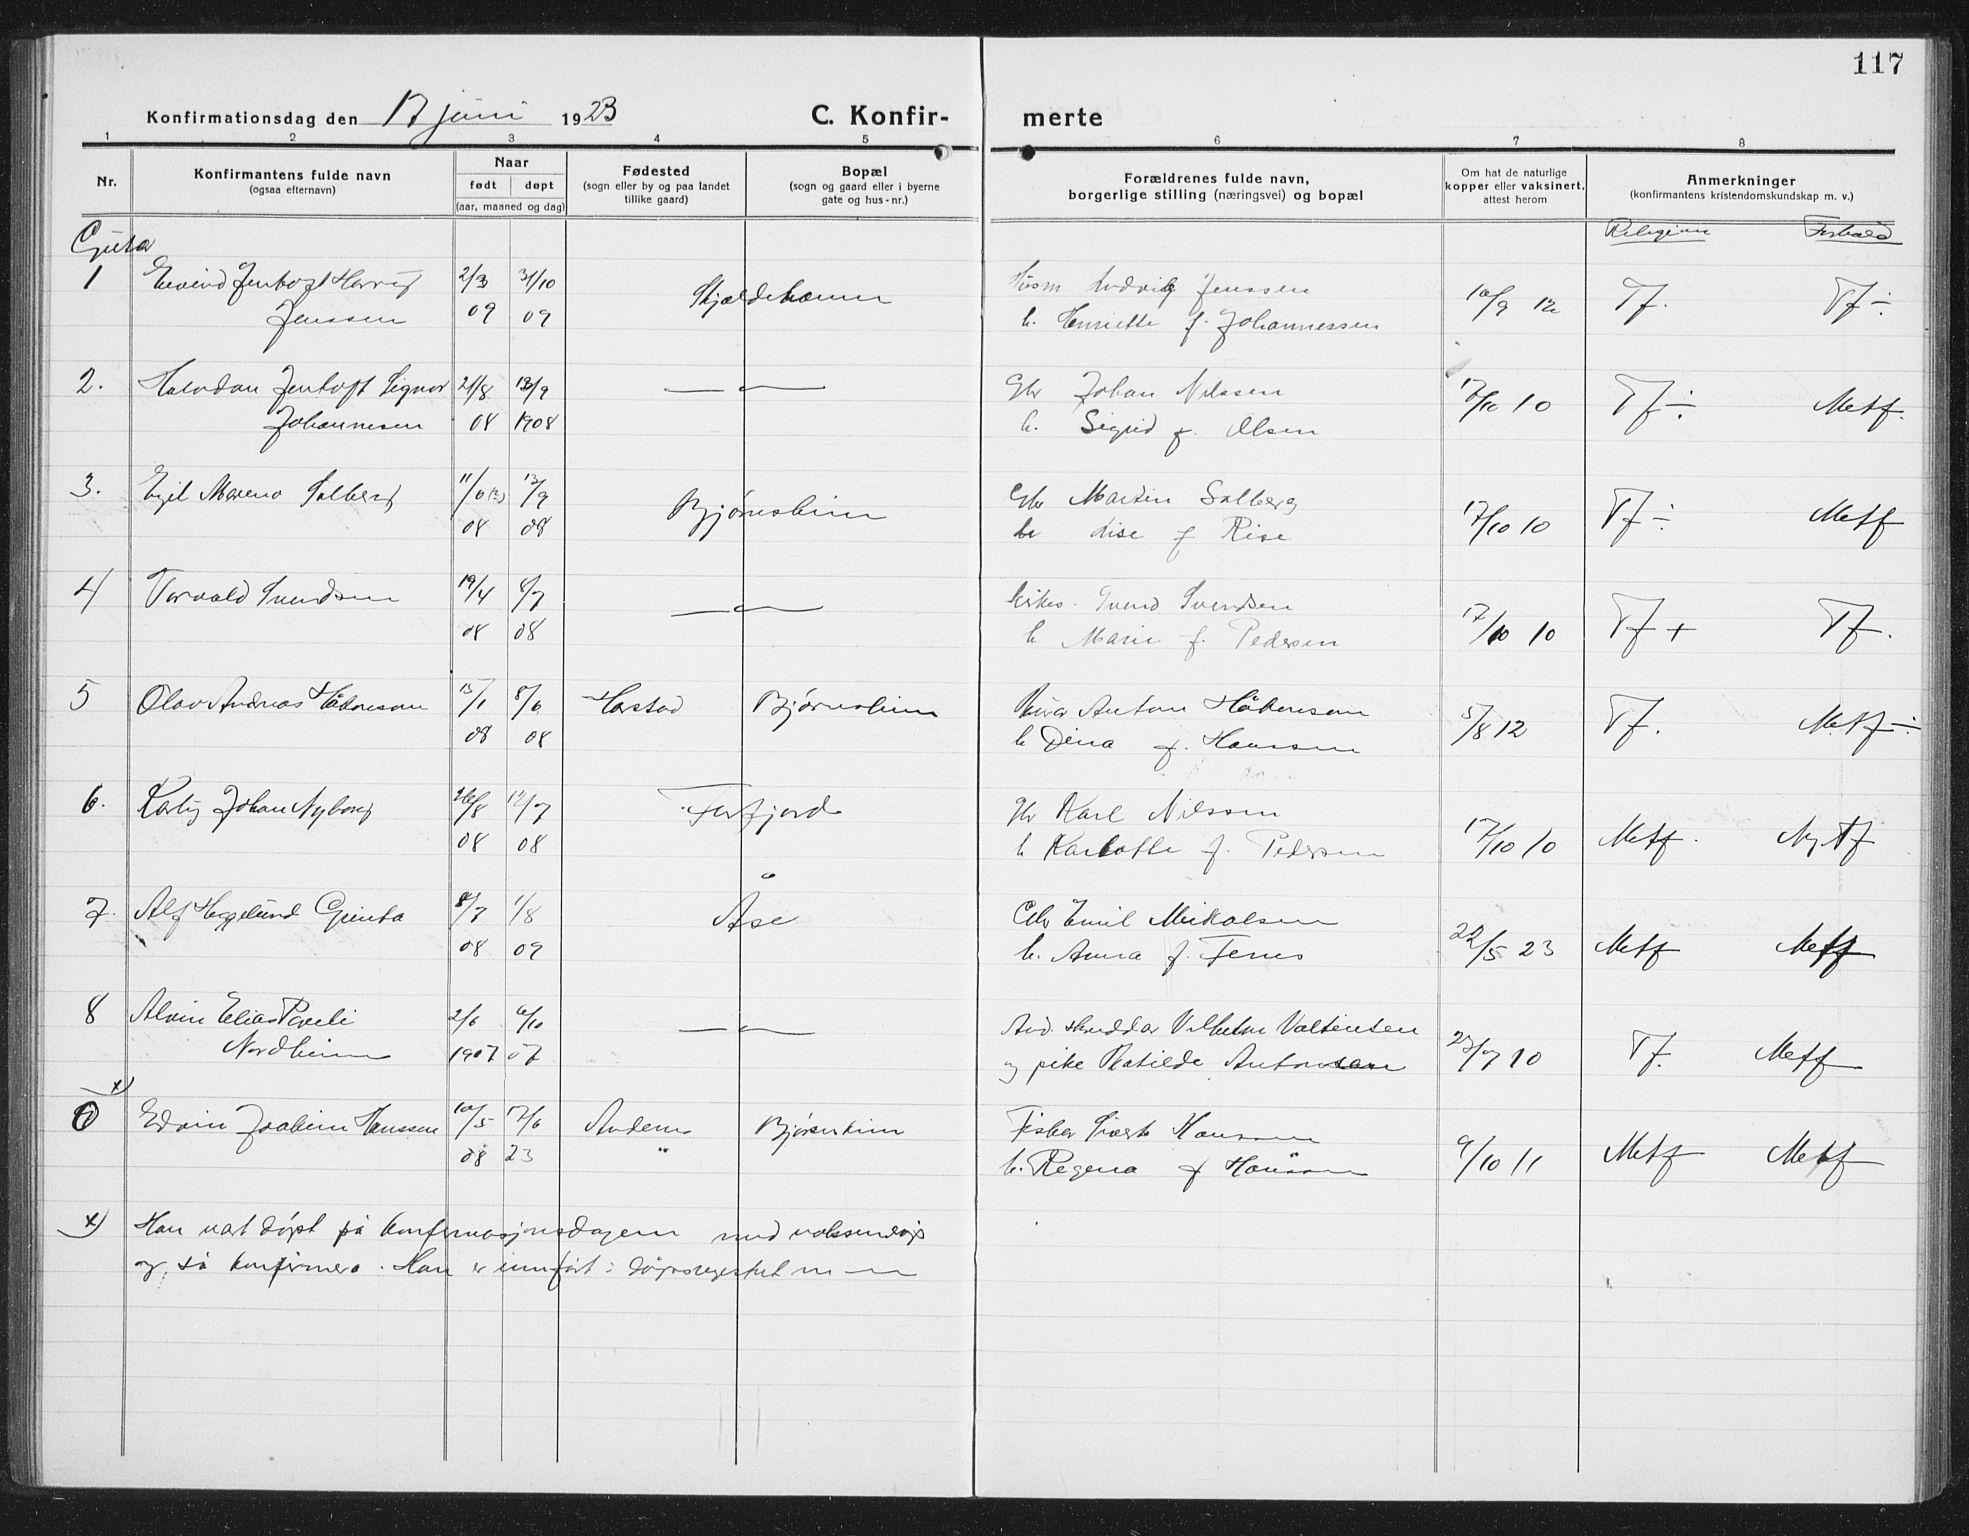 117
Konfirmationsdag den 17 juni 1923
C. Konfir-
merte
1 2 3 4 5 6 7 8
Nr.
Konfirmantens fulde navn
(ogsaa efternavn)
Naar
født døpt
(aar, maaned og dag)
Fødested
(sogn eller by og paa landet
tillike gaard)
Bopæl
(sogn og gaard eller i byerne
gate og hus-nr.)
Forældrenes fulde navn,
borgerlige stilling (næringsvei) og bopæl
Om hat de naturlige
kopper eller vaksinert,
attest herom
Anmerkninger
(konfirmantens kristendomskundskap m. v.)
Gutar
Religion Forhold
1 Eivind Jentoft 2/3 31/10 Husm Ludvig Jenssen
Jenssen 09 09 h. Henriette f. Johannessen 10/9 12 Tf. Tf ÷
2. Halvdan Jentoft Signor 21/8 13/9 — Gbr Johan Nilssen
Johannesen 08 1908 h. Sigrid f. Olsen 17/10 10 Tf ÷ Metf.
3. Egil Solberg 13/9 Bjørnskinn Gbr Martin Solberg
08 08 Lise f Rise 17/10 10 Tf ÷ Metf
4 Torvald Svendsen 19/4 8/7 — Svend Svendsen
08 08 h Marie f. Pedersen 17/10 10 Tf + Tf.
5 Olav Andreas Håkonsen 15/1 8/6 Harstad Bjørnskinn Anton Håkonsen
08 08 h Dina f. Hanssen 5/8 12 Tf. Metf ÷
6. Johan Nyborg 26/8 12/7 Forfjord Gbr Karl Nilssen
08 08 h Karlotte f. Pedersen 17/10 10 Metf. Tf
7. Alf Heggelund 8/7 1/8 Åse Gbr Emil Mikalsen
08 09 h. Anna f. 22/5 23 Metf Metf
8 Alvin Elias Pareli 2/6 6/10 — Vilhelm Valtinsen
Nordheim 1907 07 og pike Matilde Antonsen 23/7 10 Tf. Metf
x)
Edvin Joakim Hanssen 10/5 17/6 Andenes Bjørnskinn Fisker Hanssen
08 23 " h. Regina f Hansen 9/10 11 Metf Metf
x) Han vart døypt på konfirmasjonsdagen med vaksendåp
og så konfirmera. Han er innført i dåpsregistret